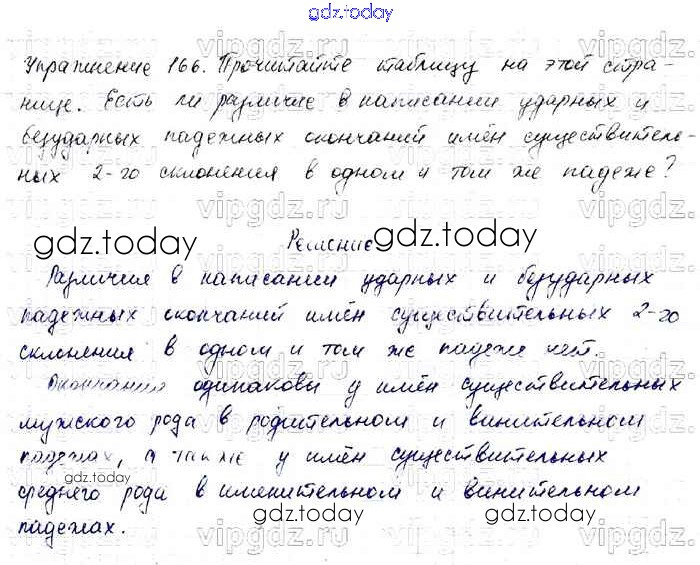 gdz.today
Упражнение 166. Прочитайте таблицу на этой стра-
нице. Есть ли различие в написании ударных и
безударных падежных окончаний имён существитель-
ных 2-го склонения в одном и том же падеже?
gdz.today
Решение
gdz.today
Различия в написании ударных и безударных
падежных окончаний имён существительных 2-го
склонения в одном и том же падеже нет.
Окончания одинаковы у имён существительных
мужского рода в родительном и винительном
падежах, а также у имён существительных
gdz.today
среднего рода в именительном и винительном
падежах.
gdz.today
gdz.today